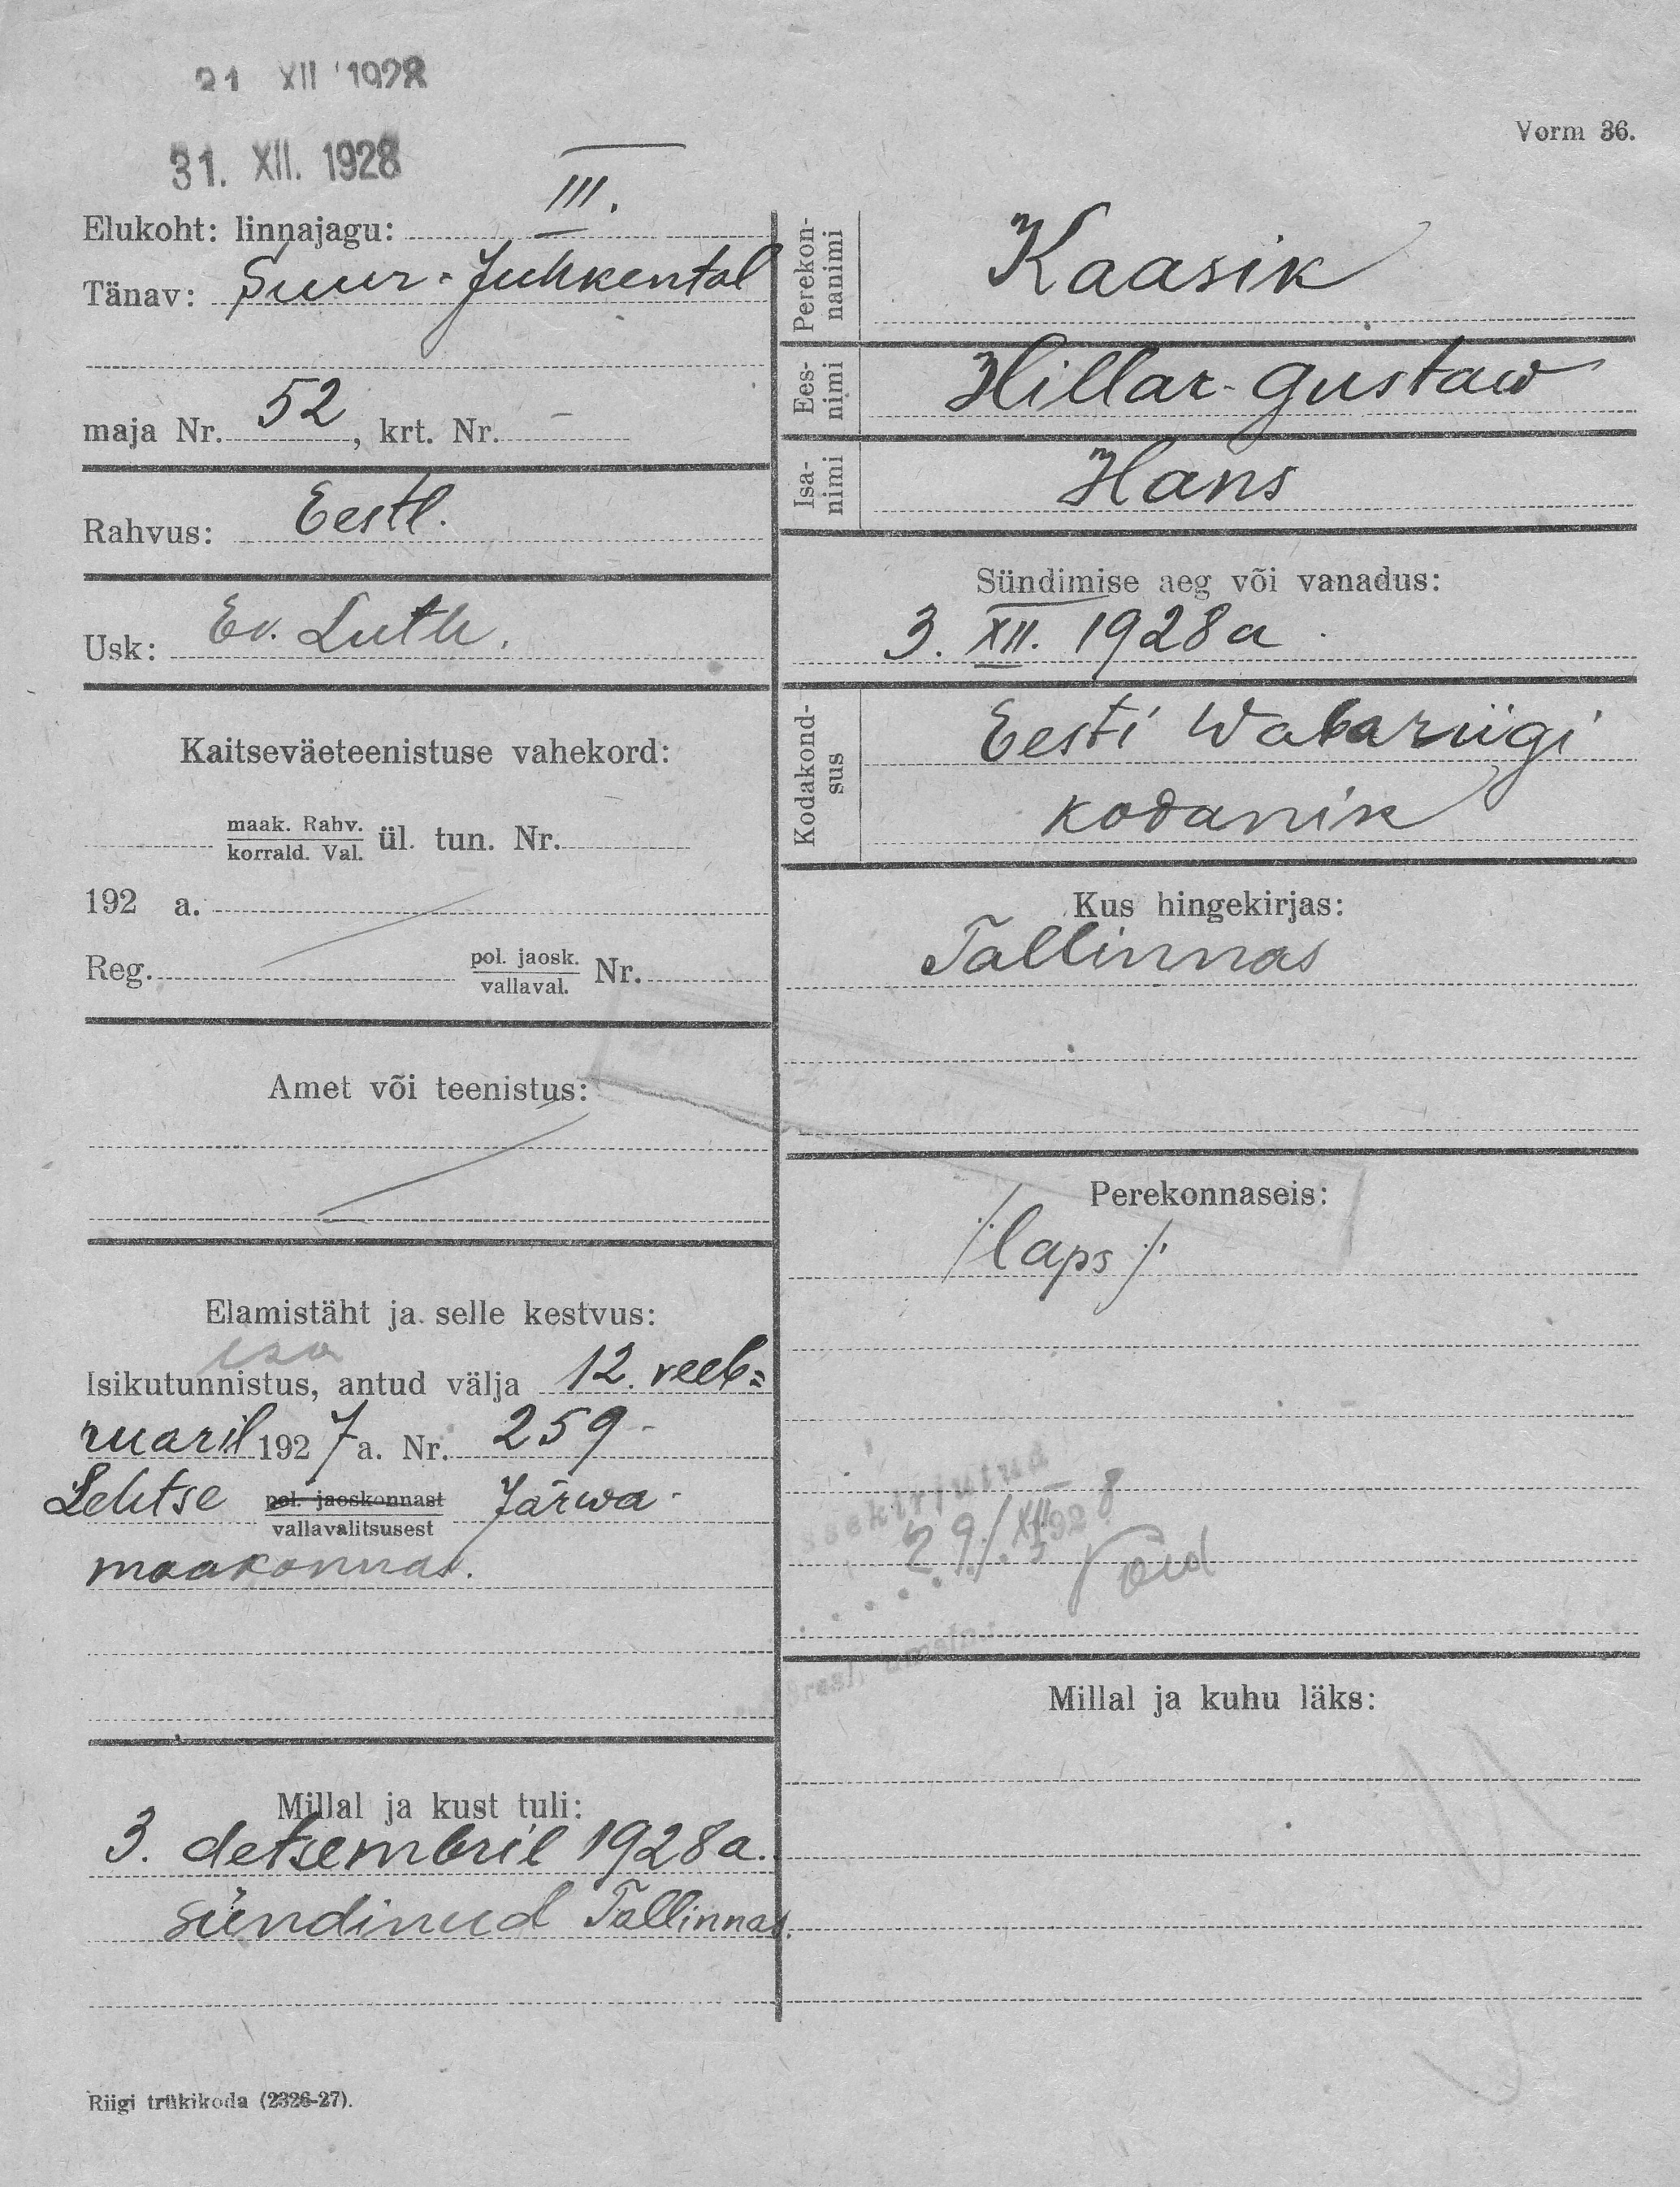 21 XII 1928
31. XII. 1928
Vorm 36.
Elukoht: linnajagu: III.
Tänav: Suur-Juhkental
maja Nr. 52, krt. Nr. –
Rahvus: Eestl.
Usk: Ev. Luth.
Kaitseväeteenistuse vahekord:
maak. Rahv.
korrald. Val. ül. tun. Nr.
192 a.
Reg. pol. jaosk.
vallaval. Nr.
Amet või teenistus:
Elamistäht ja selle kestvus:
isa
Isikutunnistus, antud välja 12. veeb=
ruaril 1927 a. Nr. 259
Lehtse pol. jaoskonnast
vallavalitsusest Järwa
maakonnas.
Millal ja kust tuli:
3. detsembril 1928 a.
sündinud Tallinnas.
Riigi trükikoda (2326-27).
Perekon-
nanimi Kaasik
Ees-
nimi Hillar-Gustaw
Isa-
nimi Hans
Sündimise aeg või vanadus:
3. XII. 1928 a.
Kodakond-
sus Eesti Wabariigi
kodanik
Kus hingekirjas:
Tallinnas
Perekonnaseis:
/laps/
sissekirjutud
29/XII 1928
Millal ja kuhu läks: